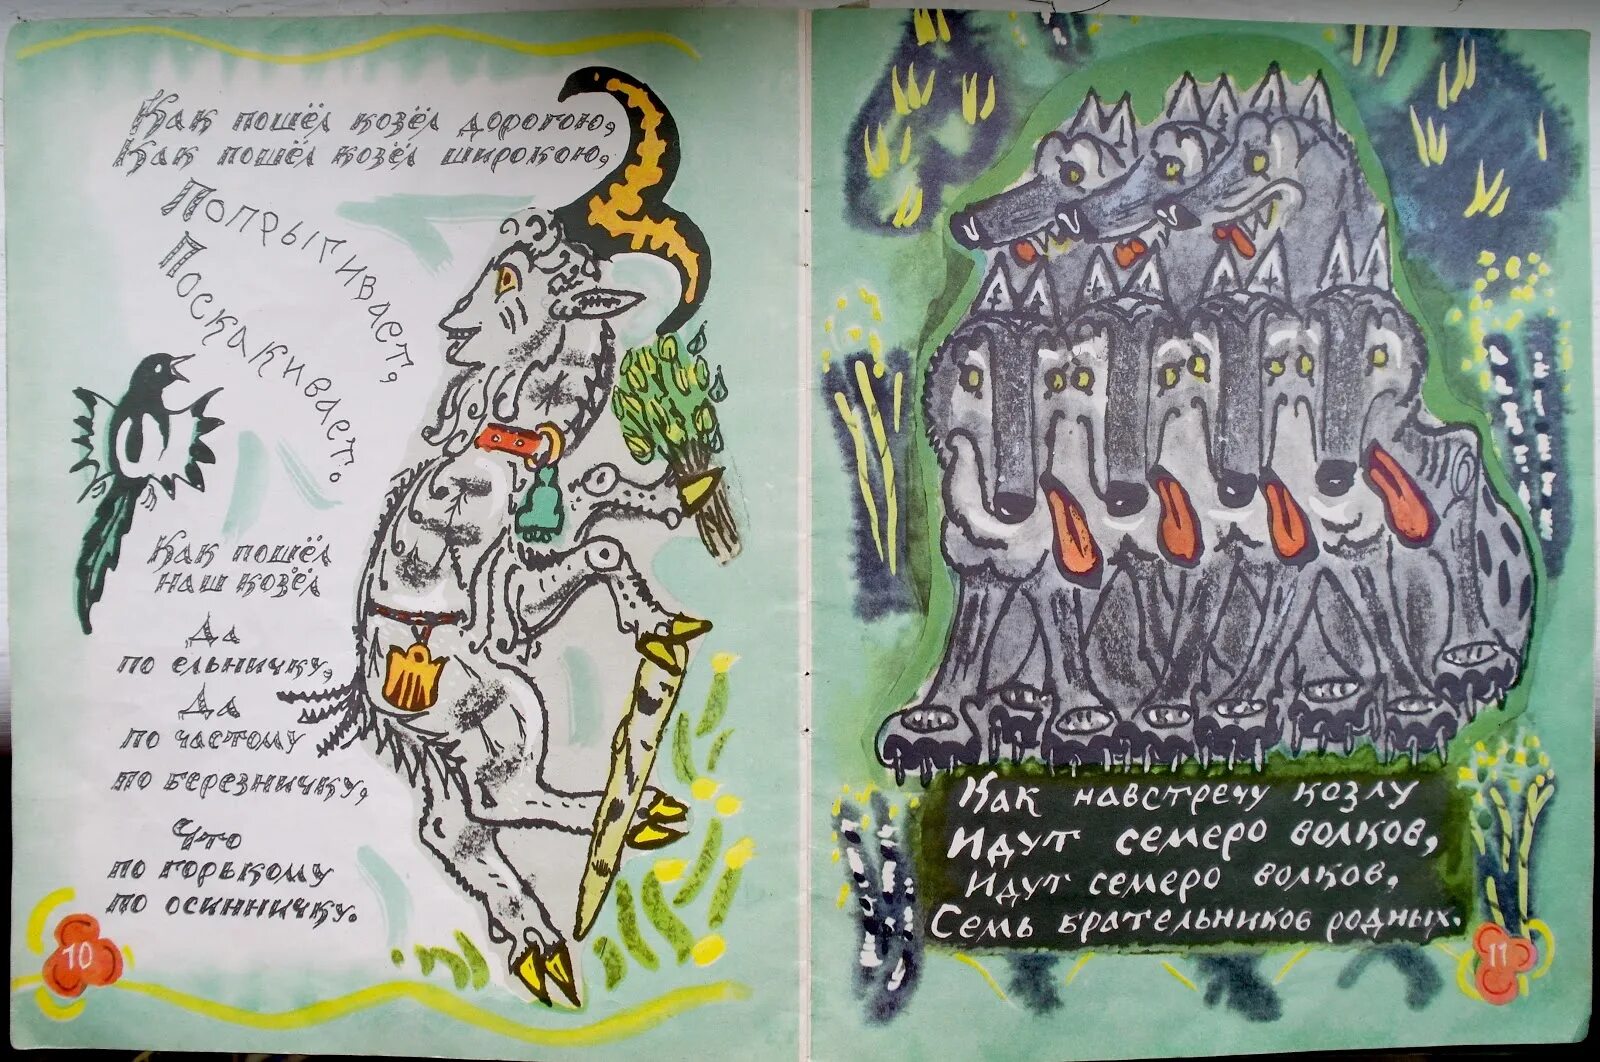 Как пошёл козёл дорогою,
Как пошёл козёл широкою,
Попрыгивает,
Поскакивает.
Как пошёл
наш козёл
Да
по ельничку,
Да
по частому
по березничку,
Что
по горькому
по осинничку.
10
Как навстречу козлу
Идут семеро волков,
Идут семеро волков,
Семь брательников родных.
11